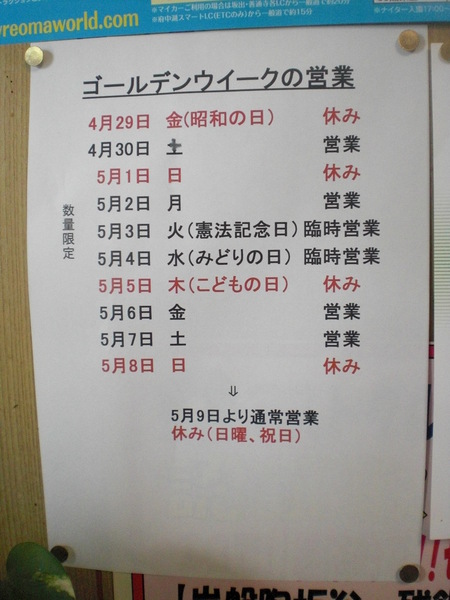 reomaworld.com
※マイカーご利用の場合は坂出・善通寺各ICから一般道で約20分
※府中湖スマートIC(ETCのみ)から一般道で約15分
ゴールデンウイークの営業
4月29日 金(昭和の日) 休み
4月30日 土 営業
5月1日 日 休み
5月2日 月 営業
5月3日 火(憲法記念日) 臨時営業
5月4日 水(みどりの日) 臨時営業
5月5日 木(こどもの日) 休み
5月6日 金 営業
5月7日 土 営業
5月8日 日 休み
数量限定
⇓
5月9日より通常営業
休み(日曜、祝日)